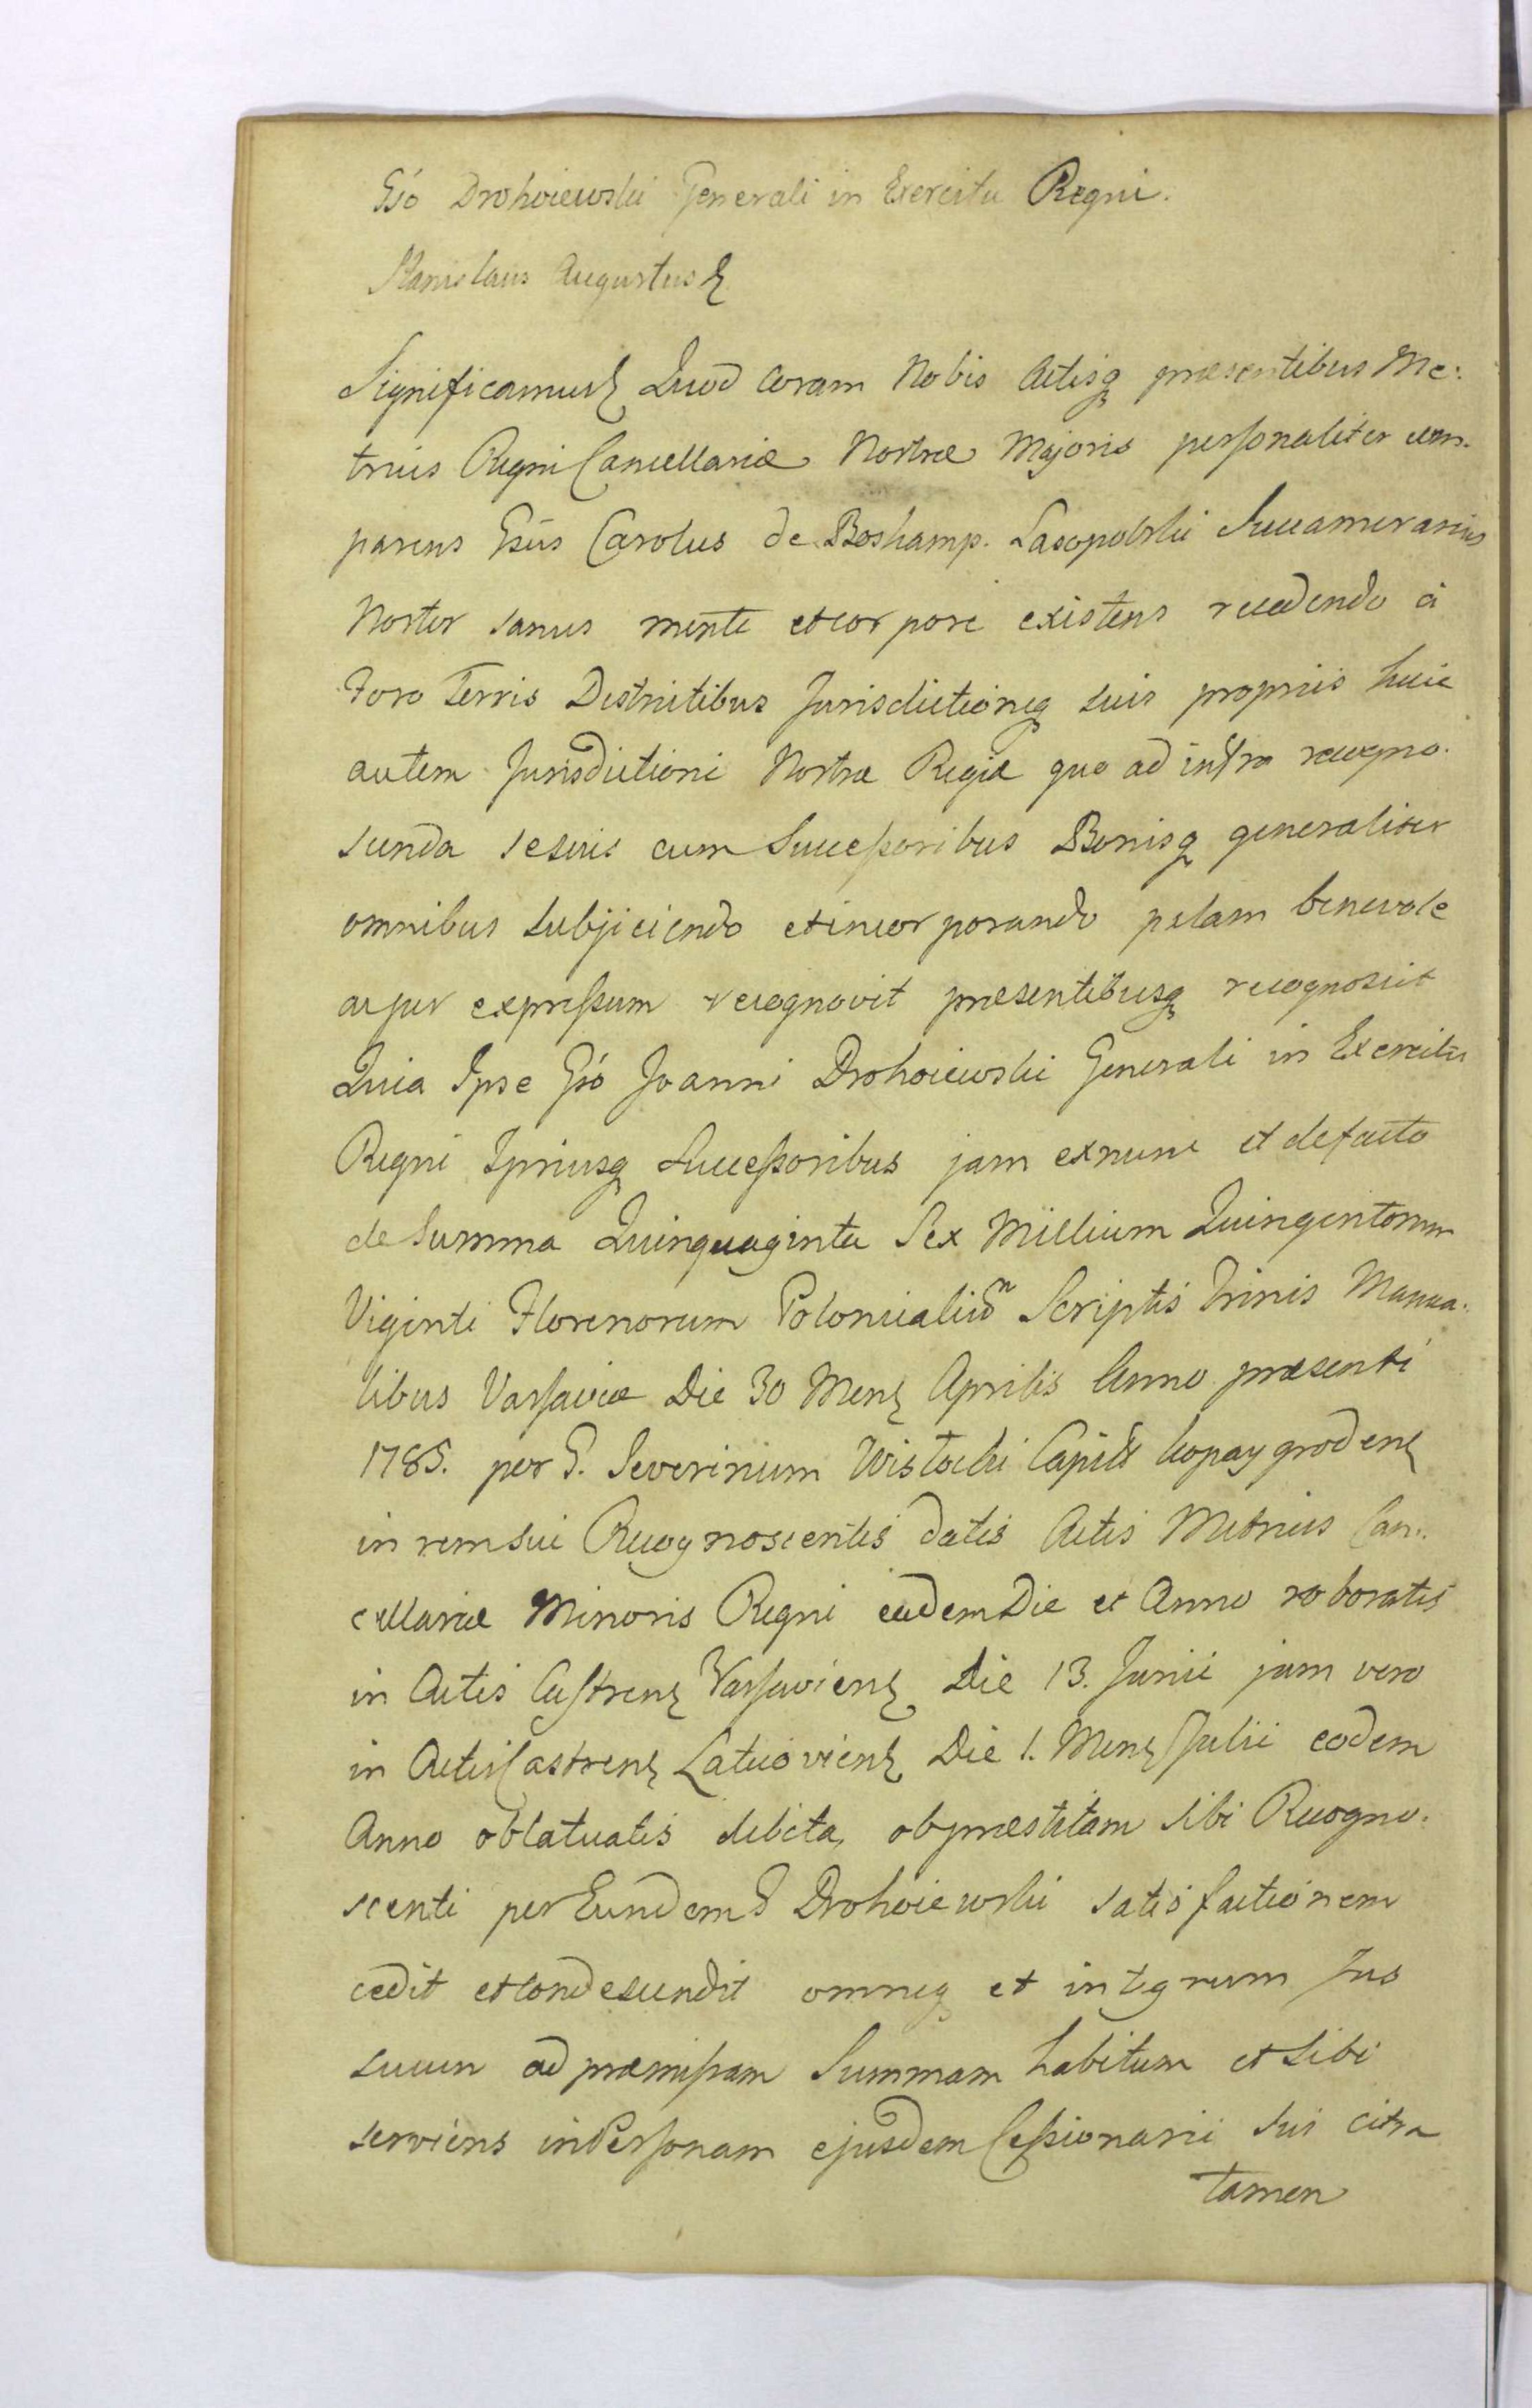 Gsó Drohoiewski Generali in Exercitu Regni.
Stanislaus Augustus &
Significamus & Quod Coram Nobis Actisq praesentibus Me:
trices Regni Cancellariae Nostrae Majoris personaliter com.
parens Gsus Carolus de Boskamp. Lasopolski Succamerarius
Noster sanus mente et corpore existens recedendo à
Foro Terris Districtibus Jurisdictioneq suis propriis huic
autem Jurisdictioni Nostrae Regiae quo ad infra recogno.
scenda se suis cum Successoribus Bonisq generaliter
omnibus Subjiciendo et incorporando palam benevole
ac per expressum recognovit praesentibusq recognoscit
Quia Ipse Gsó Joanni Drohoiewski Generali in Exercitu
Regni Ipsiusq Successoribus jam exnunc et defacto
de Summa Quinquaginta Sex Millium Quingentorum
Viginti Florenorum Polonicaliũm Scriptis Trinis Manua.
libus Varsaviae Die 30 Mens Aprilis Anno praesenti
1785. per G. Severinum Wistocki Capit Kopaygrodens
in rem sui Recognoscentis datis Actis Metrices Can:
cellariae Minoris Regni eadem Die et Anno roboratis
in Actis Castrens Varsaviens Die 13. Junii jam vero
in Actis Castrens Latiioviens Die 1. Mens Julii eodem
Anno oblatuatis debita, ob praestitam Sibi Recogno.
scenti per Eundem G Drohoiewski satisfactionem
cedit et Condescendit omneq et integrum Jus
suum ad praemissam Summam habitum et Sibi
serviens in Personam ejusdem Cessionarii Sui citra
tamen